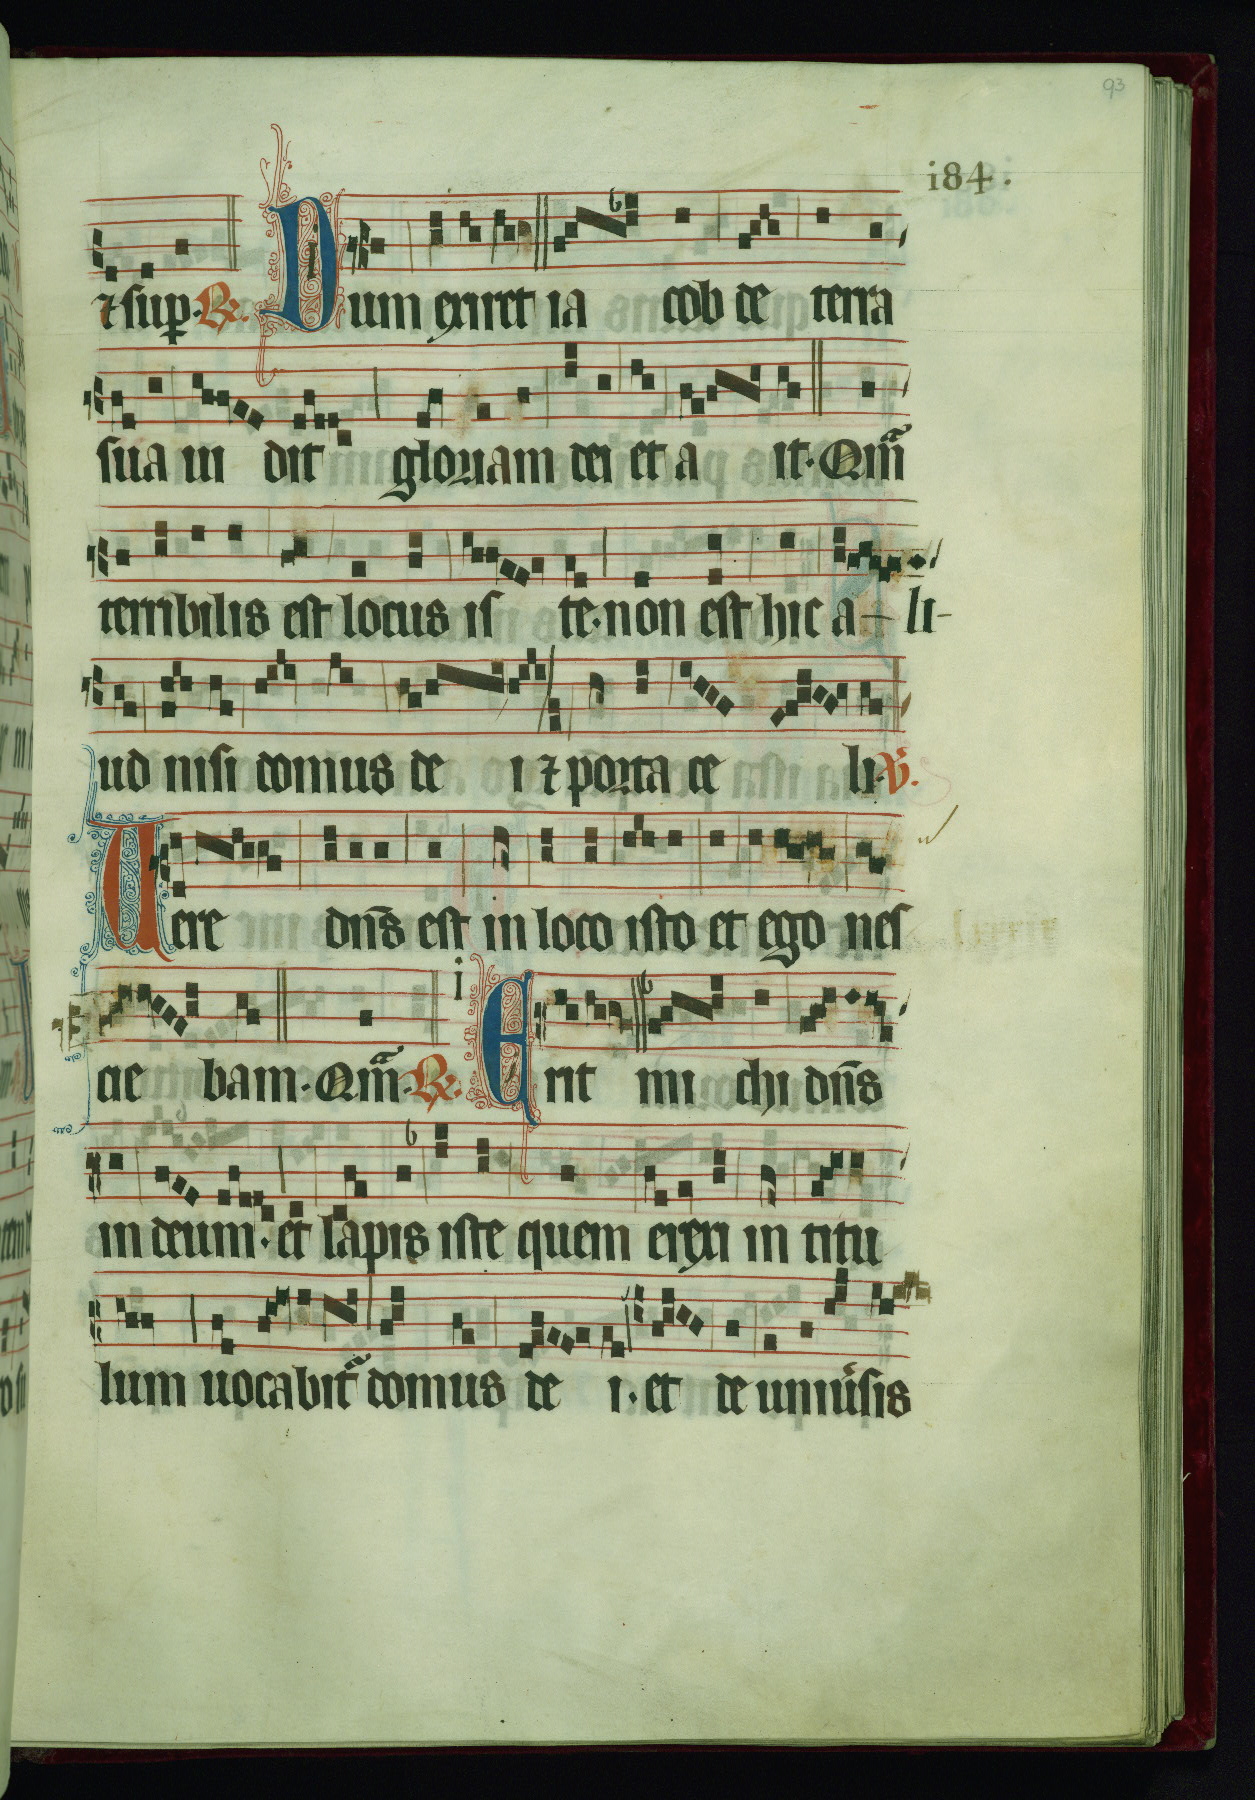 93
i84.
⁊ sup̱. ℟. Dum exiret ia cob de terra
sua ui dit gloriam dei et a it. Qm̄
terribilis est locus is te. non est hic a - li-
ud nisi domus de i ⁊ porta ce li. ℣.
Uere dn̄s est in loco isto et ego nes
cie bam. Qm̄. ℟. i Erit mi chi dn̄s
in deum. et lapis iste quem erexi in titu
lum uocabit᷑ domus de i. et de uniu᷑sis